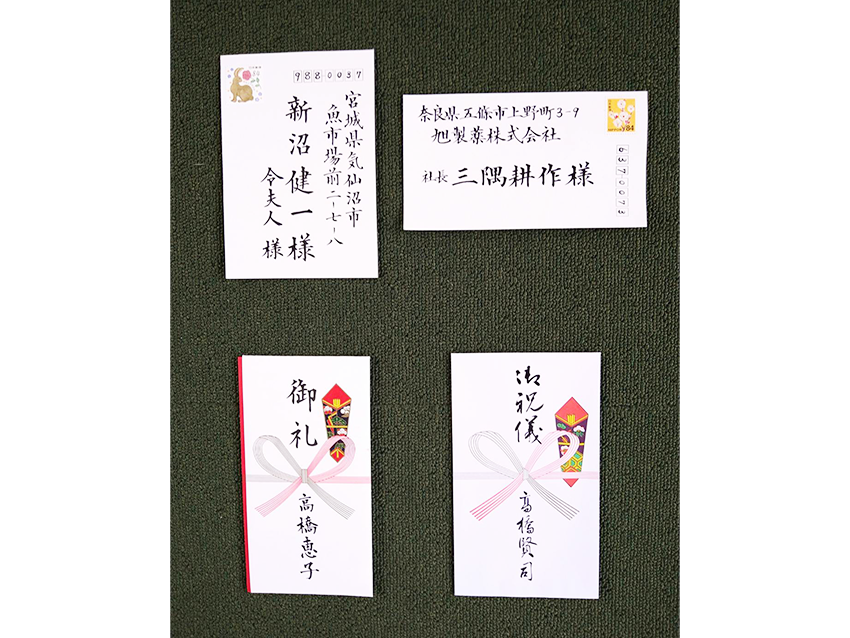 9880037
宮城県気仙沼市
魚市場前二-七-八
新沼健一様
令夫人 様
奈良県五條市上野町3-9
旭製薬株式会社
社長 三隅耕作様
84
6370073
御礼
高橋恵子
御祝儀
高橋賢司